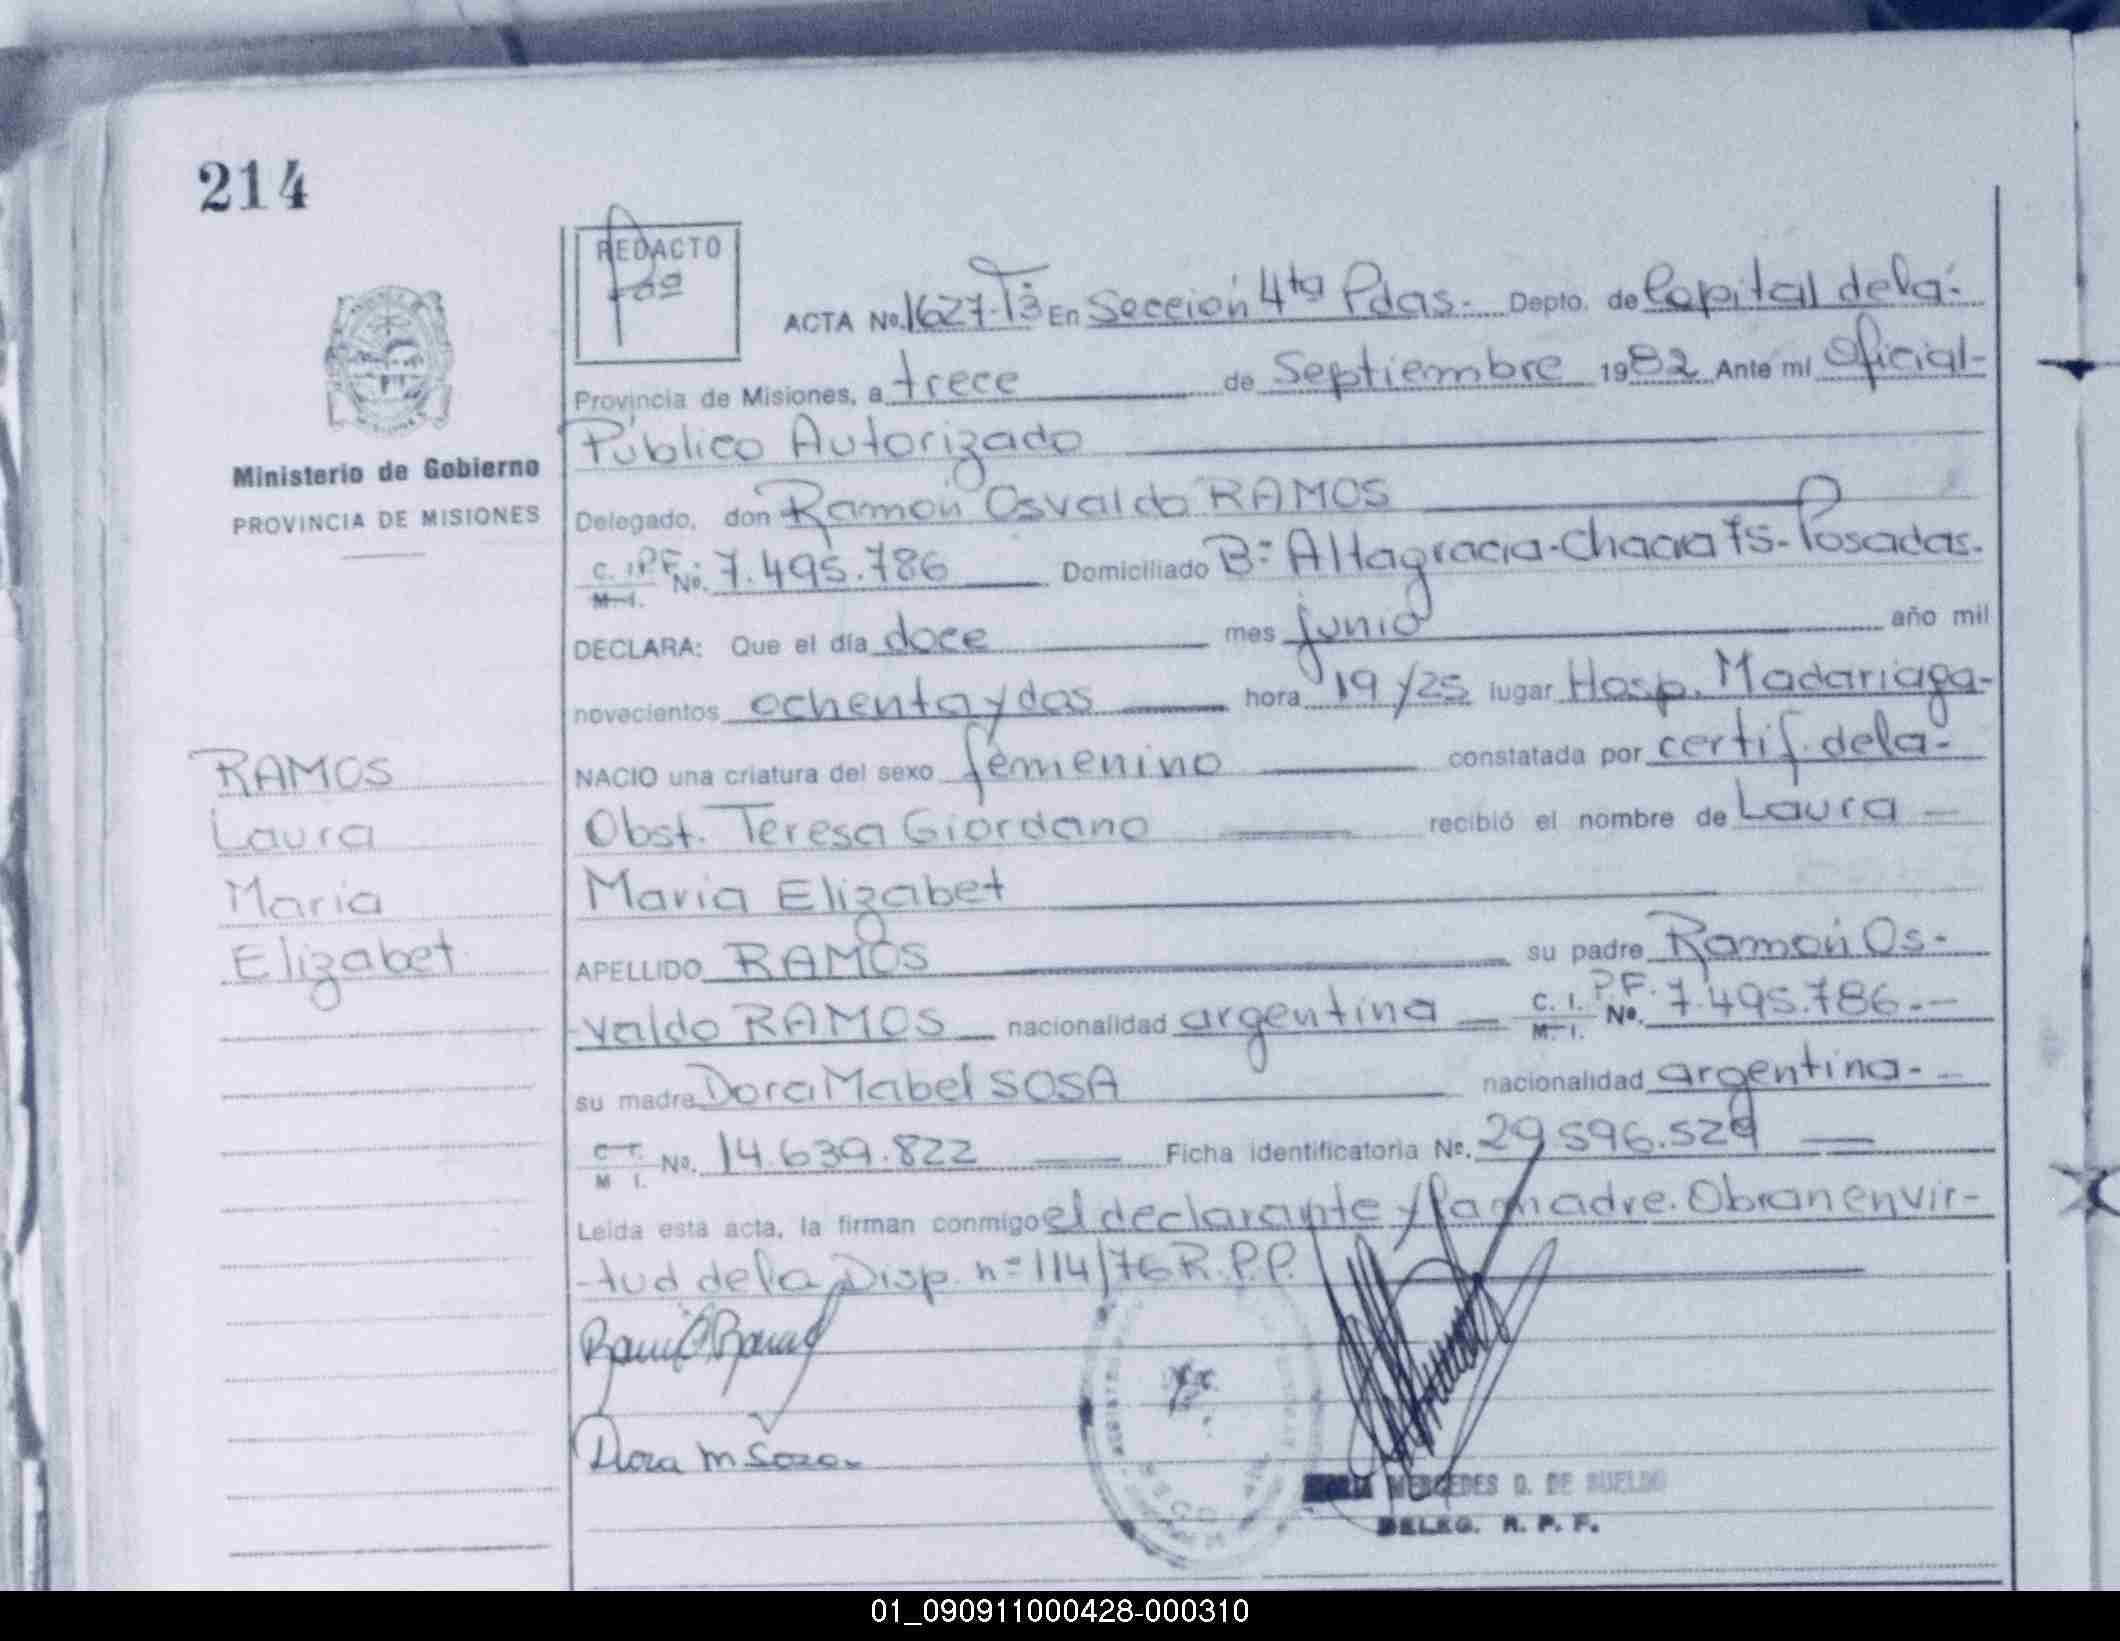 214
REDACTO
ACTA No. 1627-Tº3 En Sección 4ta Pdas.- Depto. de Capital de la-
Provincia de Misiones, a trece de Septiembre 1982 Ante mi Oficial-
Público Autorizado
Ministerio de Gobierno
PROVINCIA DE MISIONES
Delegado, don Ramón Osvaldo RAMOS
C. I. P.F. No. 7.495.786 Domiciliado Bº Altagracia-Chacra 75-Posadas.
M. I.
DECLARA: Que el día doce mes junio año mil
novecientos ochenta y dos hora 19 y 25 lugar Hosp. Madariaga-
RAMOS
NACIO una criatura del sexo femenino constatada por certif. de la-
Laura
Obst. Teresa Giordano recibió el nombre de Laura
Maria
Maria Elizabet
Elizabet
APELLIDO RAMOS su padre Ramón Os-
valdo RAMOS nacionalidad argentina C. I. P.F. Nº. 7.495.786.-
M. I.
su madre Dora Mabel SOSA nacionalidad argentina.-
C. I. No. 14.639.822 Ficha identificatoria Nº. 29.596.529
M I.
Leida esta acta, la firman conmigo el declarante y la madre. Obran en vir-
-tud de la Disp. nº 114/76 R.P.P.
Dora M Sosa
MERCEDES D. DE SUELDO
DELEG. R. P. F.
01_090911000428-000310